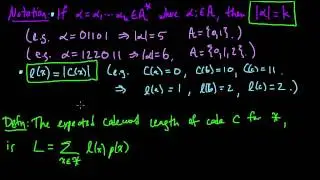 Notation: If α = α₁ ⋯ αₖ ∈ A* where αᵢ ∈ A, then |α| = k
(e.g. α = 01101 ⇒ |α| = 5 A = {0,1})
(e.g. α = 122011 ⇒ |α| = 6, A = {0,1,2}.)
• l(x) = |C(x)| (e.g. C(a) = 0, C(b) = 10, C(c) = 11.
⇒ l(a) = 1, l(b) = 2, l(c) = 2.)
Defn: The expected codeword length of code C for X,
is L = Σ x∈X l(x) p(x)